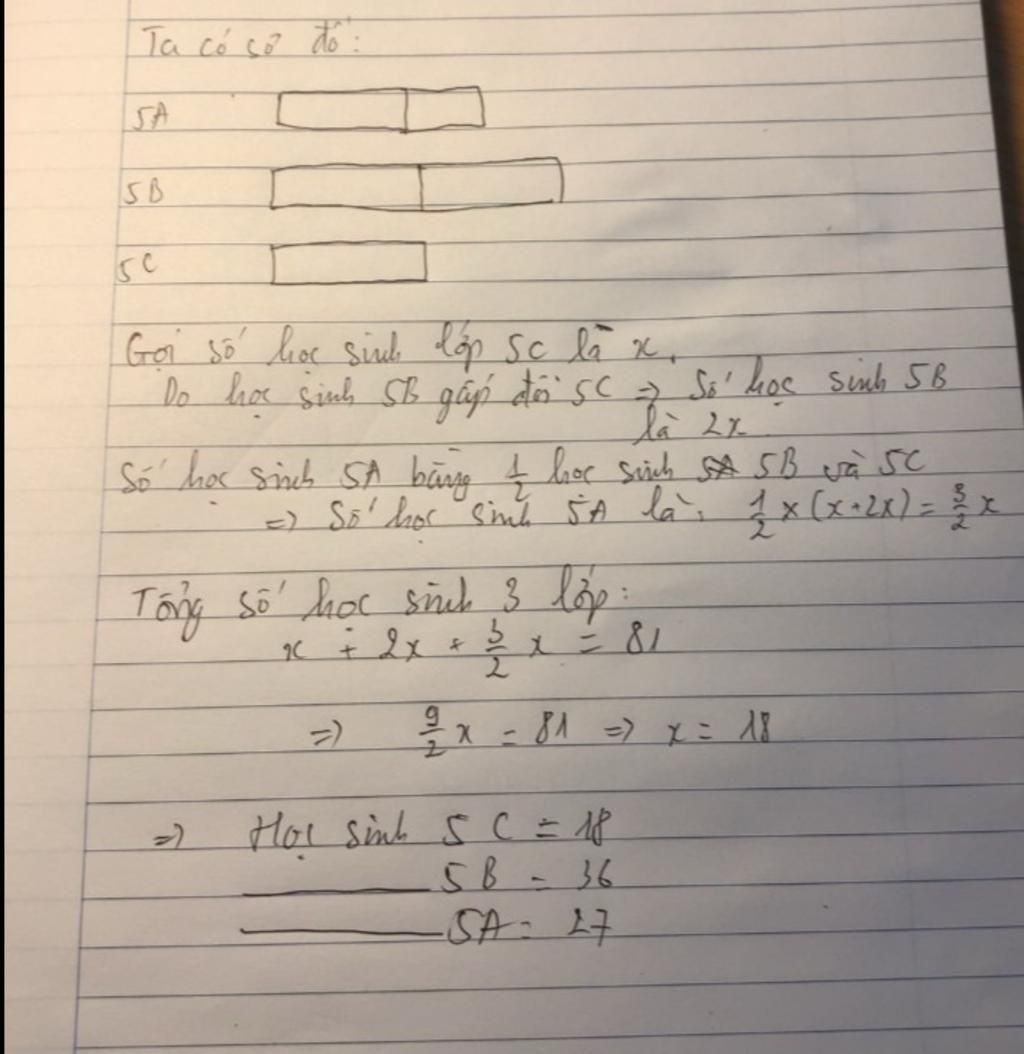 Ta có sơ đồ:
5A
5B
5C
Gọi số học sinh lớp 5C là x.
Do học sinh 5B gấp đôi 5C => Số học sinh 5B
là 2x
Số học sinh 5A bằng 1/2 học sinh 5B và 5C
=> Số học sinh 5A là: 1/2 x (x+2x) = 3/2 x
Tổng số học sinh 3 lớp:
x + 2x + 3/2 x = 81
=> 9/2 x = 81 => x = 18
=> Học sinh 5C = 18
5B = 36
5A = 27